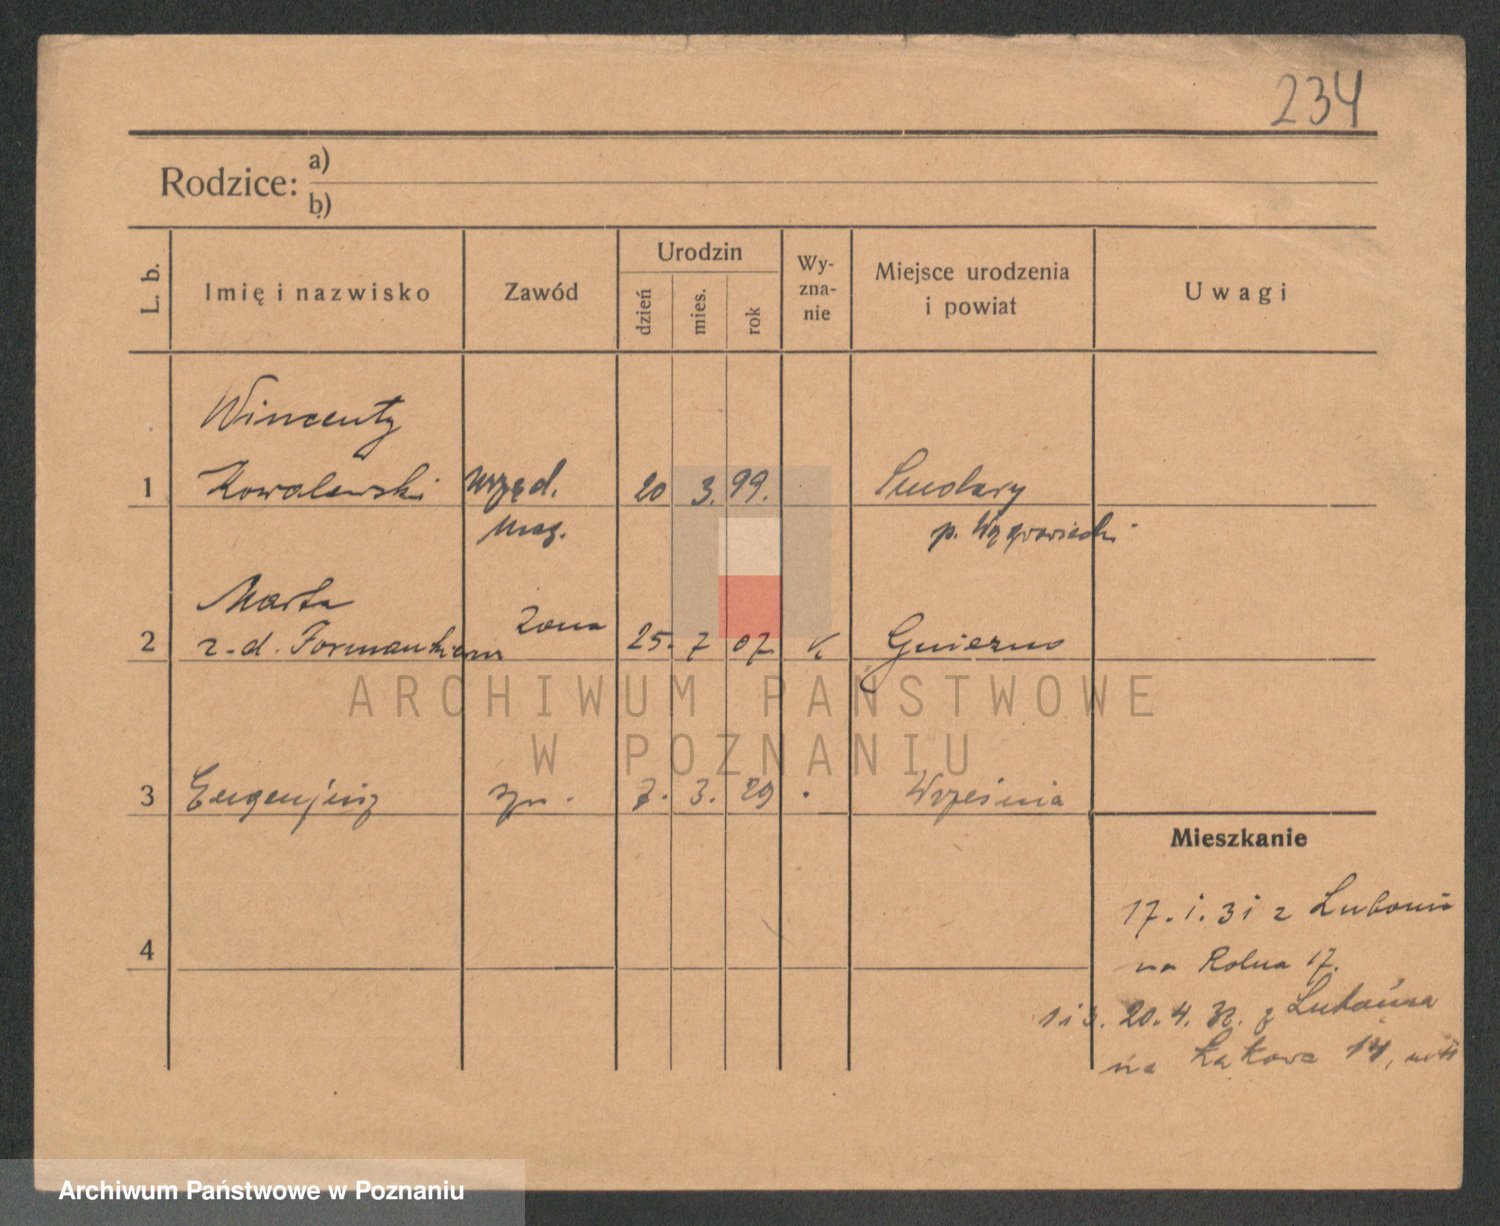 234
Rodzice: a)
b)
L. b.
Imię i nazwisko
Zawód
Urodzin
dzień
mies.
rok
Wy-
zna-
nie
Miejsce urodzenia
i powiat
Uwagi
Wincenty
1 Kowalewski urzęd. 20 3. 99. Smolary
mag. p. Wągrowiecki
Marta
2 z-d. Żona 25. 7 07 K Gniezno
ARCHIWUM PAŃSTWOWE
W POZNANIU
3 Eugenjusz syn. 7. 3. 29 Września
Mieszkanie
17. i. 31 z Lubonia
4
na Rolna 17.
1 i 3. 20. 4. 32. z
na Łąkowa 14,
Archiwum Państwowe w Poznaniu